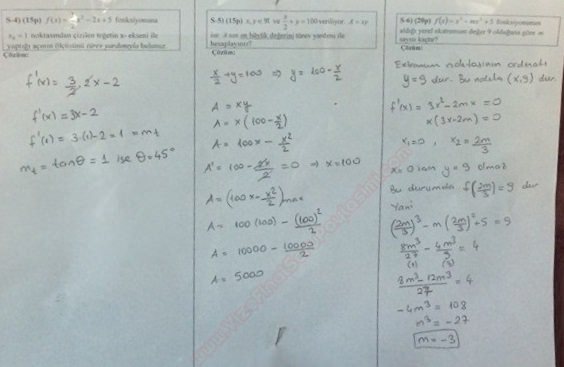 S-4) (15p) f(x) = 3/2 x² - 2x + 5 fonksiyonuna
x₀ = 1 noktasından çizilen teğetin x- ekseni ile
yaptığı açının ölçüsünü türev yardımıyla bulunuz.
Çözüm:
f'(x) = 3/2 · 2x - 2
f'(x) = 3x - 2
f'(1) = 3·(1) - 2 = 1 = mt
mt = tanθ = 1 ise θ = 45°
S-5) (15p) x, y ∈ ℜ ve x/2 + y = 100 veriliyor. A = xy
ise A nın en büyük değerini türev yardımı ile
hesaplayınız?
Çözüm:
x/2 + y = 100 ⇒ y = 100 - x/2
A = xy
A = x(100 - x/2)
A = 100x - x²/2
A' = 100 - 2x/2 = 0 ⇒ x = 100
A = (100x - x²/2)max
A = 100(100) - (100)²/2
A = 10000 - 10000/2
A = 5000
S-6) (20p) f(x) = x³ - mx² + 5 fonksiyonunun
aldığı yerel ekstremum değer 9 olduğuna göre m
sayısı kaçtır?
Çözüm:
Extremum noktasının ordinatı
y = 9 dur. Bu nokta (x, 9) dur.
f'(x) = 3x² - 2mx = 0
x(3x - 2m) = 0
x₁ = 0 , x₂ = 2m/3
x = 0 için y = 9 olmaz
Bu durumda f(2m/3) = 9 dur
Yani
(2m/3)³ - m(2m/3)² + 5 = 9
8m³/27 - 4m³/9 = 4
(1) (3)
8m³ - 12m³/27 = 4
-4m³ = 108
m³ = -27
m = -3